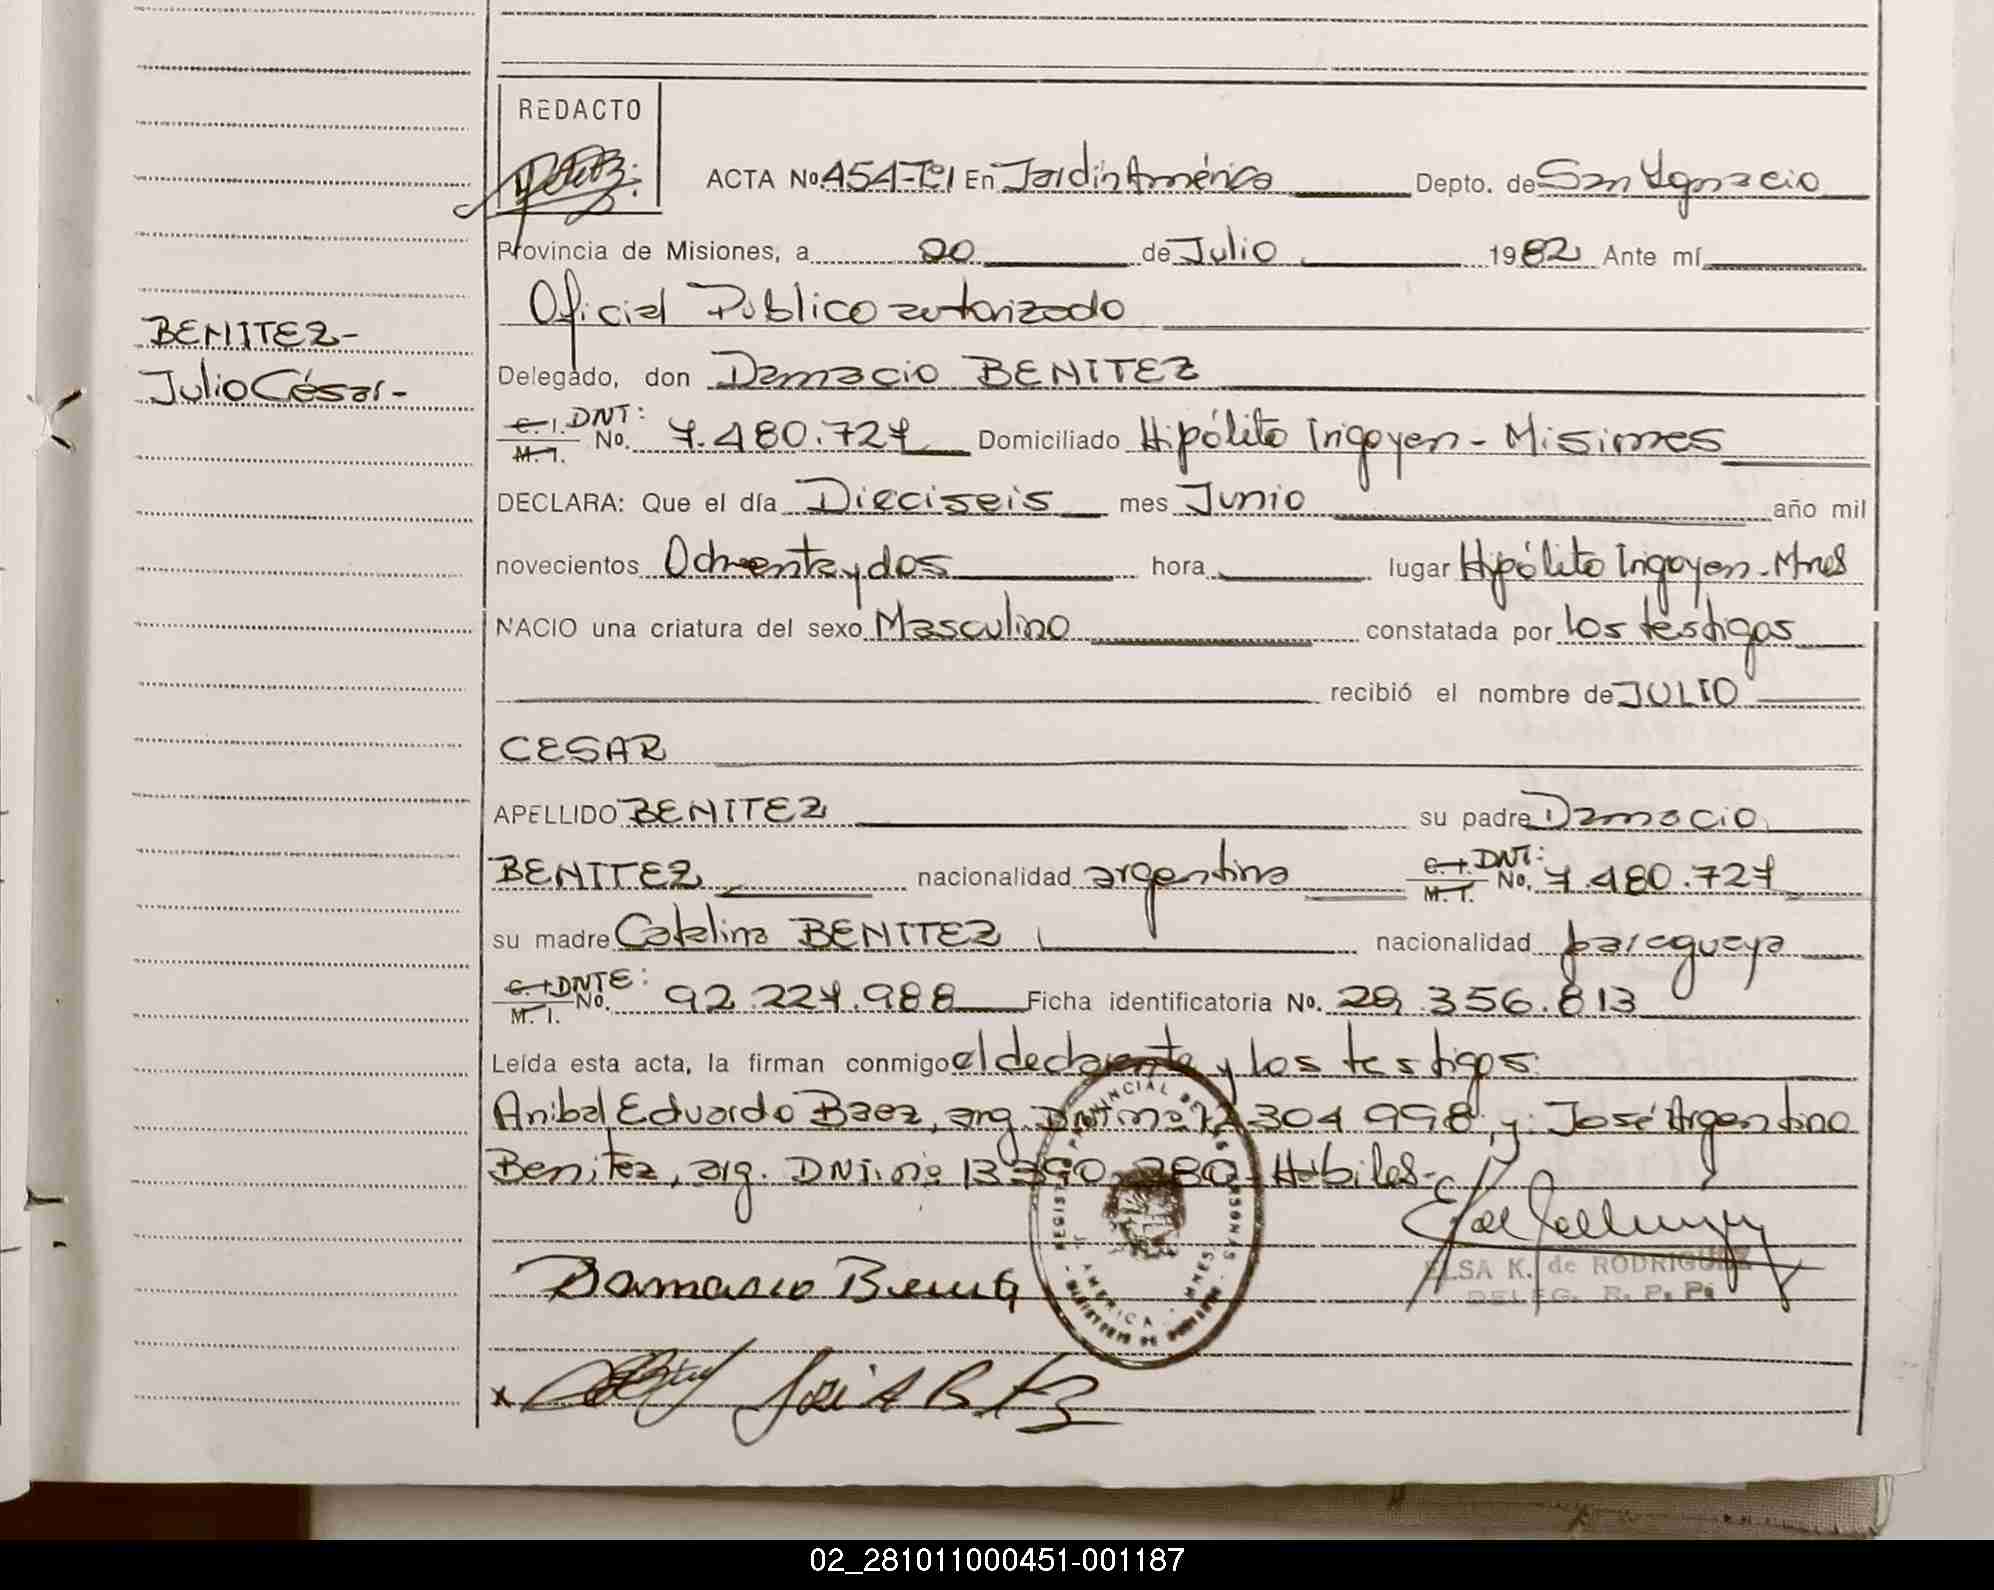 REDACTO
ACTA No. 454-Tº1 En Jardín América Depto. de San Ygnacio
Provincia de Misiones, a 20 de Julio 1982 Ante mí
Oficial Público autorizado
BENITEZ-
Julio César-
Delegado, don Damacio BENITEZ
C. I. DNI:
M. I. No. 7.480.727 Domiciliado Hipólito Irigoyen - Misiones
DECLARA: Que el día Dieciseis mes Junio año mil
novecientos Ochenta y dos hora lugar Hipólito Irigoyen - Mnes
NACIO una criatura del sexo Masculino constatada por los testigos
recibió el nombre de JULIO
CESAR
APELLIDO BENITEZ su padre Damacio
BENITEZ nacionalidad argentina C. I. DNI: M. I. No. 7.480.727
su madre Catalina BENITEZ nacionalidad paraguaya
C. I. DNIE: M. I. No. 92.227.988 Ficha identificatoria No. 29.356.813
Leída esta acta, la firman conmigo el declarante y los testigos:
Anibal Eduardo Baez, arg. DNI nº 12.304.998, y: José Argentino
Benitez, arg. DNI. nº 13.390.280 - Hábiles-
ELSA K. de RODRIGUEZ
DELEG. R. P. P.
Damacio Benit
José A B
02_281011000451-001187